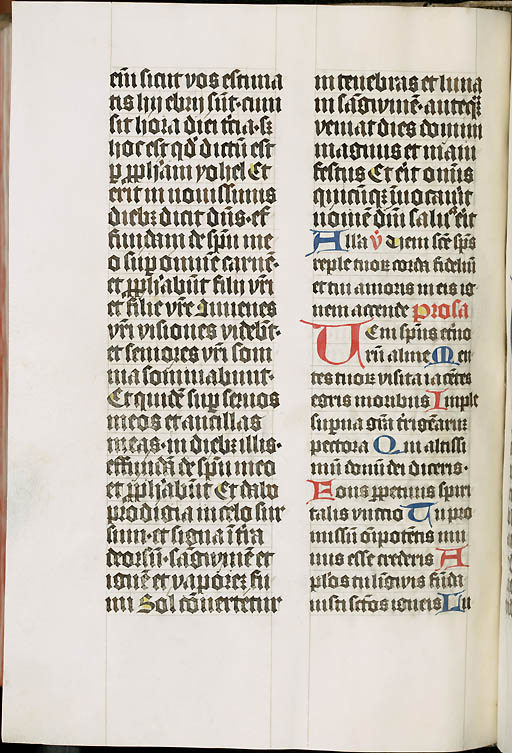 em̄ sicut vos estima
tis hij ebrij sūt · cum
sit hora diei tcīa · sꝫ
hoc est qđ dictū est
p̱ pph̄am yohel Et
erit in nouissimis
diebꝫ dicit dn̄s · ef
fundam de spū me
o sup omnē carnē ·
et pph̄abūt filij vrī
et filie vrē Juuenes
vrī visiones videbūt ·
et seniores vrī som
nia sominabunt ·
Et quidē sup seruos
meos et ancillas
meas · in diebꝫ illis ·
effundā de spū meo
et pph̄abūt Et dabo
prodigia in celo sur
sum · et signa ī tr̄a
deorsū · sāgwinē et
ignē et vaporeꝫ fu
mi Sol cōuertetur
in tenebras et luna
in sāgwinē · anteqꝫ
veniat dies domini
magnus et mani
festus Et erit omīs
quicūqꝫ īuocauit
nomē dīni saluꝰ erit
Alla v̄ Ueni scē sp̄s
reple tuoꝝ corda fideliū
et tui amoris in eis ig
nem accende prosa
Ueni spūs et̄no
rū alme Men
tes tuoꝝ visita iacētes
egris moribus Imple
superna grā t̓rigēarūꝫ
pectora Qui altissi
mū donū dei diceris ·
Fons p̱petuus spiri
talis vnctio Tu pro
missū oīpotētis mu
nus esse crederis A
plos tu ligwis fūda
iusti sct̄os igneis Lu